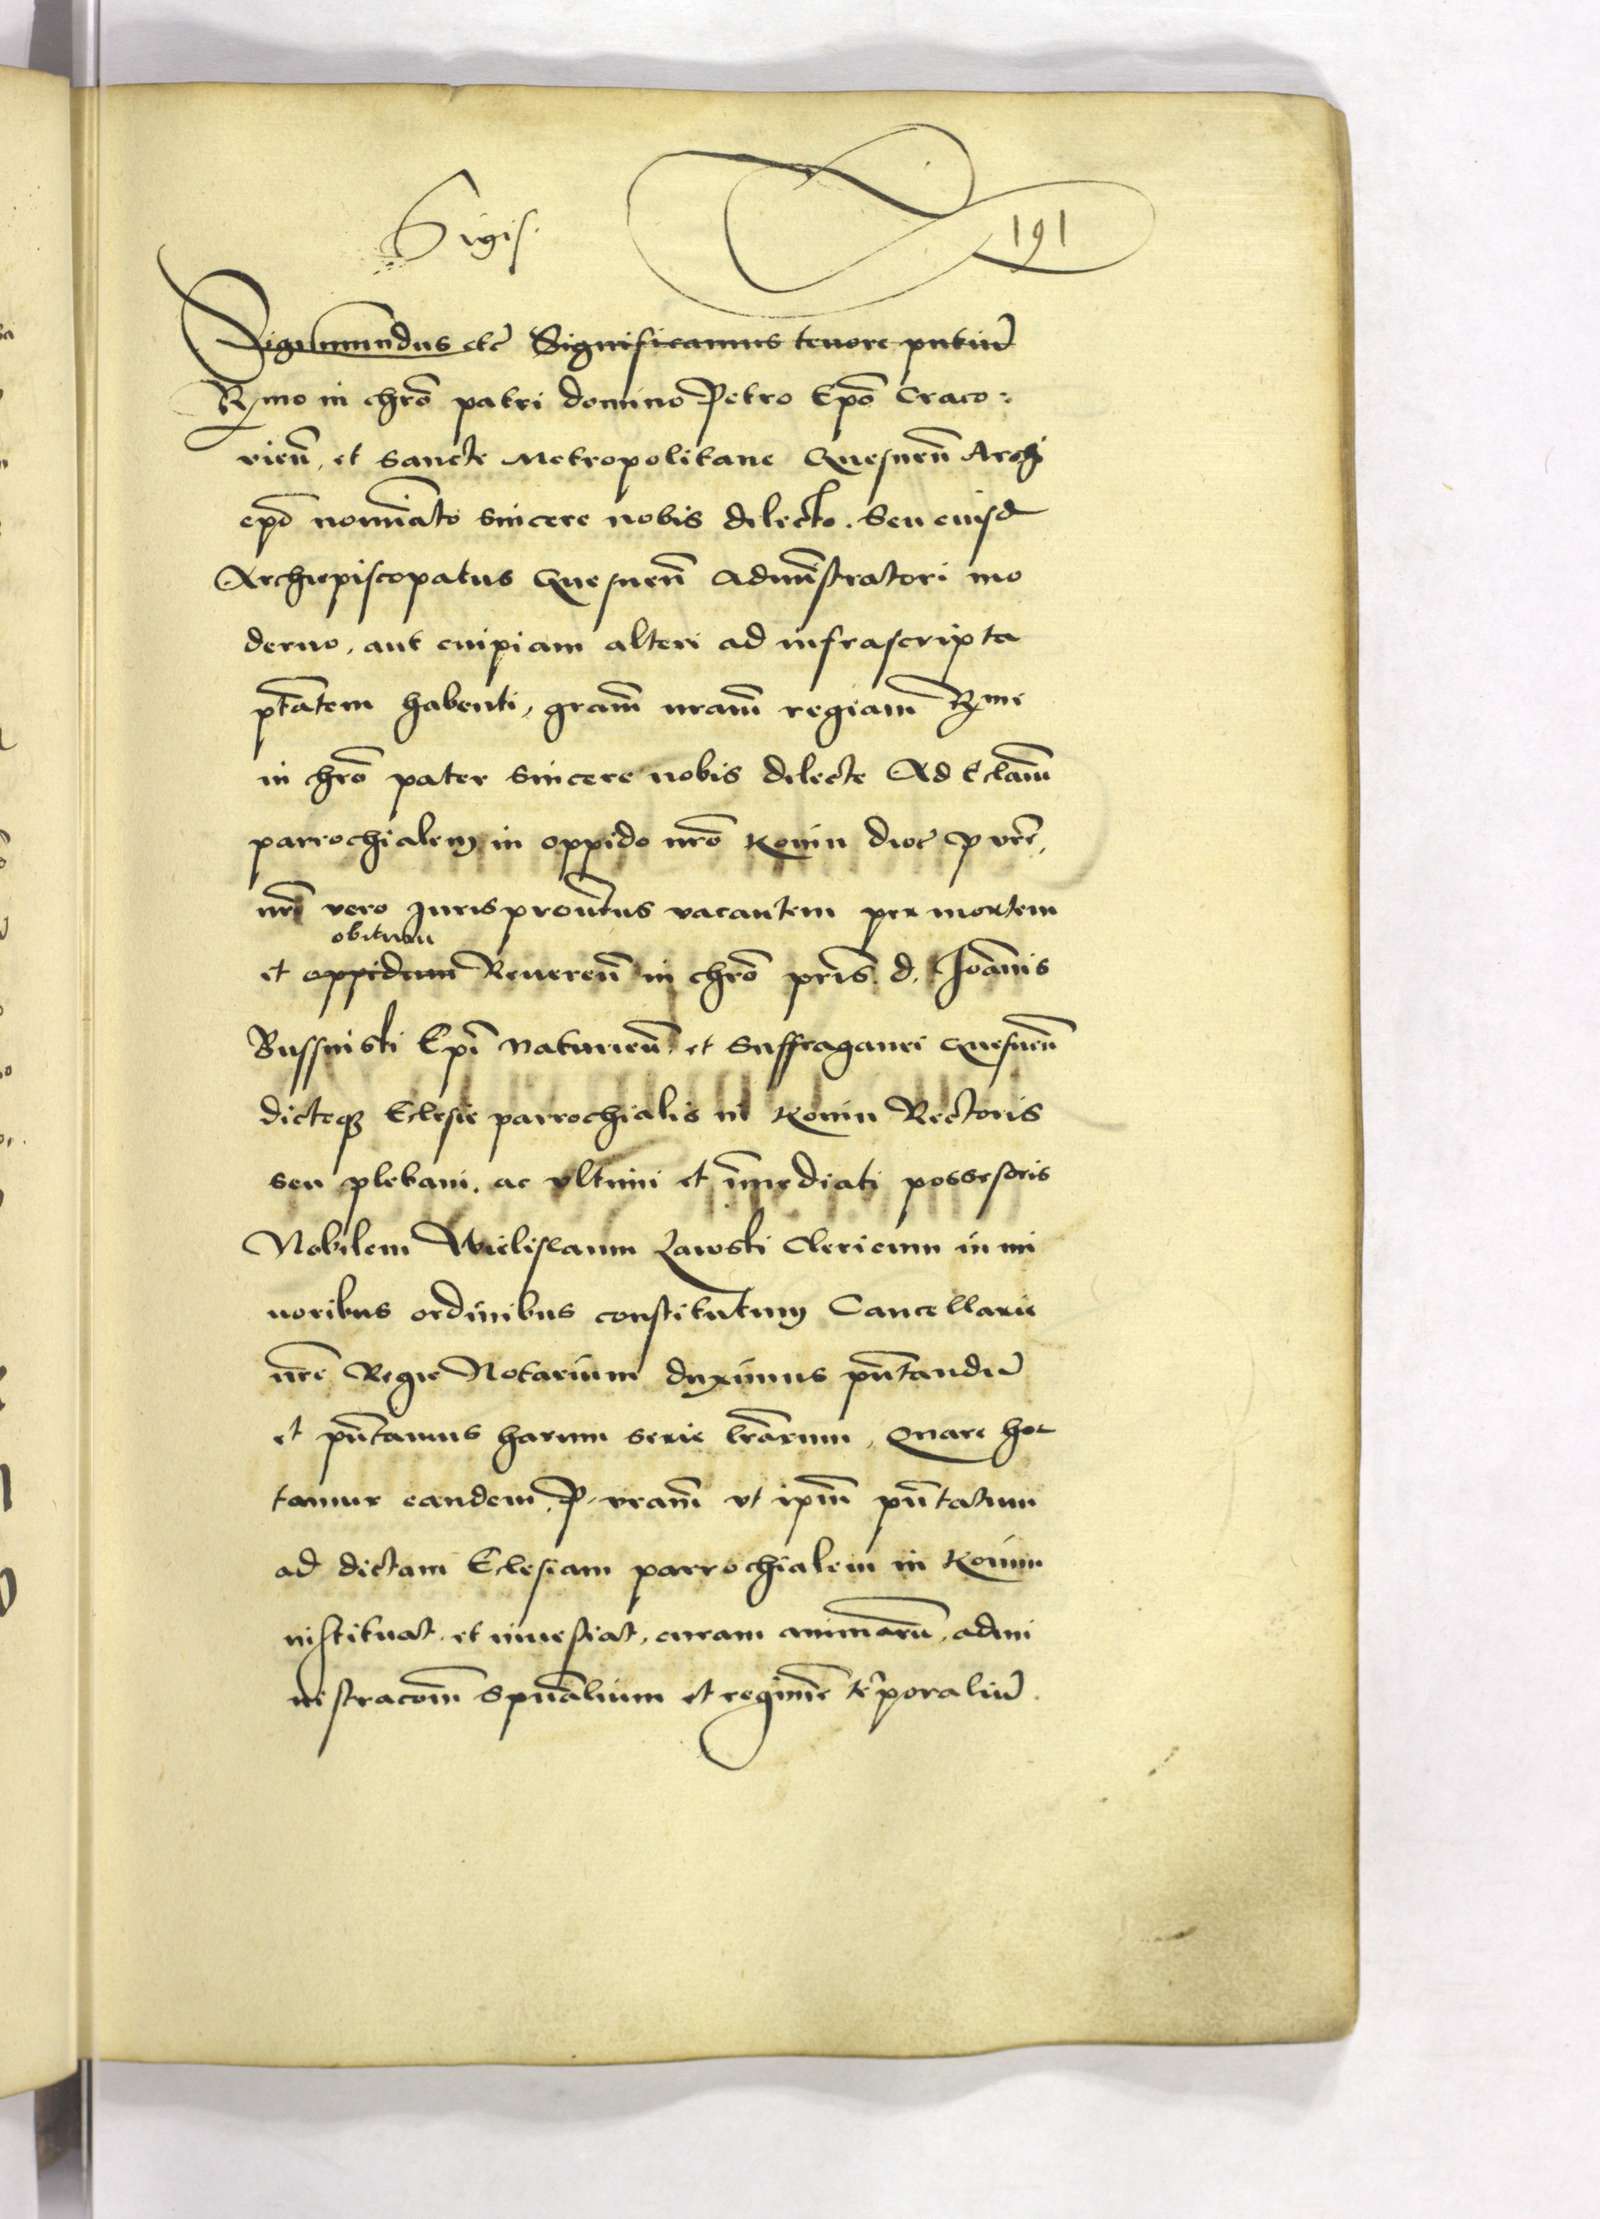 Sigis. 191
Sigismundus etc̃ Significamus tenore pn̄tiũ
Rmo in chrō patri domino Petro Epō Craco:
vien̄, et Sancte Metropolitane Gnesnen̄ Archi
epō nomi̅ato sincere nobis dilecto. Seu eiusd
Archiepiscopatus Gnesnen̄ Admi̅stratori mo
derno, aut cuipiam alteri ad infrascripta
ptātem habenti, gram̄ nram̄ regiam Rme
in chrō pater sincere nobis dilecte Ad Eclam̄
parrochialem in oppido nrō Konin dioc̄ P vrē,
nrī vero Jurispron̄tus vacantem per mortem
obitum
et oppidum Reueren̄ in chrō prīs d. Joānnis
Bussinski Epī Naturien̄ et Suffraganei Gnesnen̄
dicteq Eclesie parrochialis in Konin Rectoris
seu plebani, ac vltimi et im̄mediati possessoris
Nobilem Wielislaum Zawski Clericum in mi
noribus ordinibus constitutum Cancellarie
nrē Regie Notarium duximus pn̄tandũ
et pn̄tamus harum serie lrārum, Quare hor
tamur eandem P. vram̄ vt ipm̄ pn̄tatum
ad dictam Eclesiam parrochialem in Konin
instituat, et inuestiat, curam animarū, admi
nistracom̄ Spūalium et regime̅ tēporaliũ.